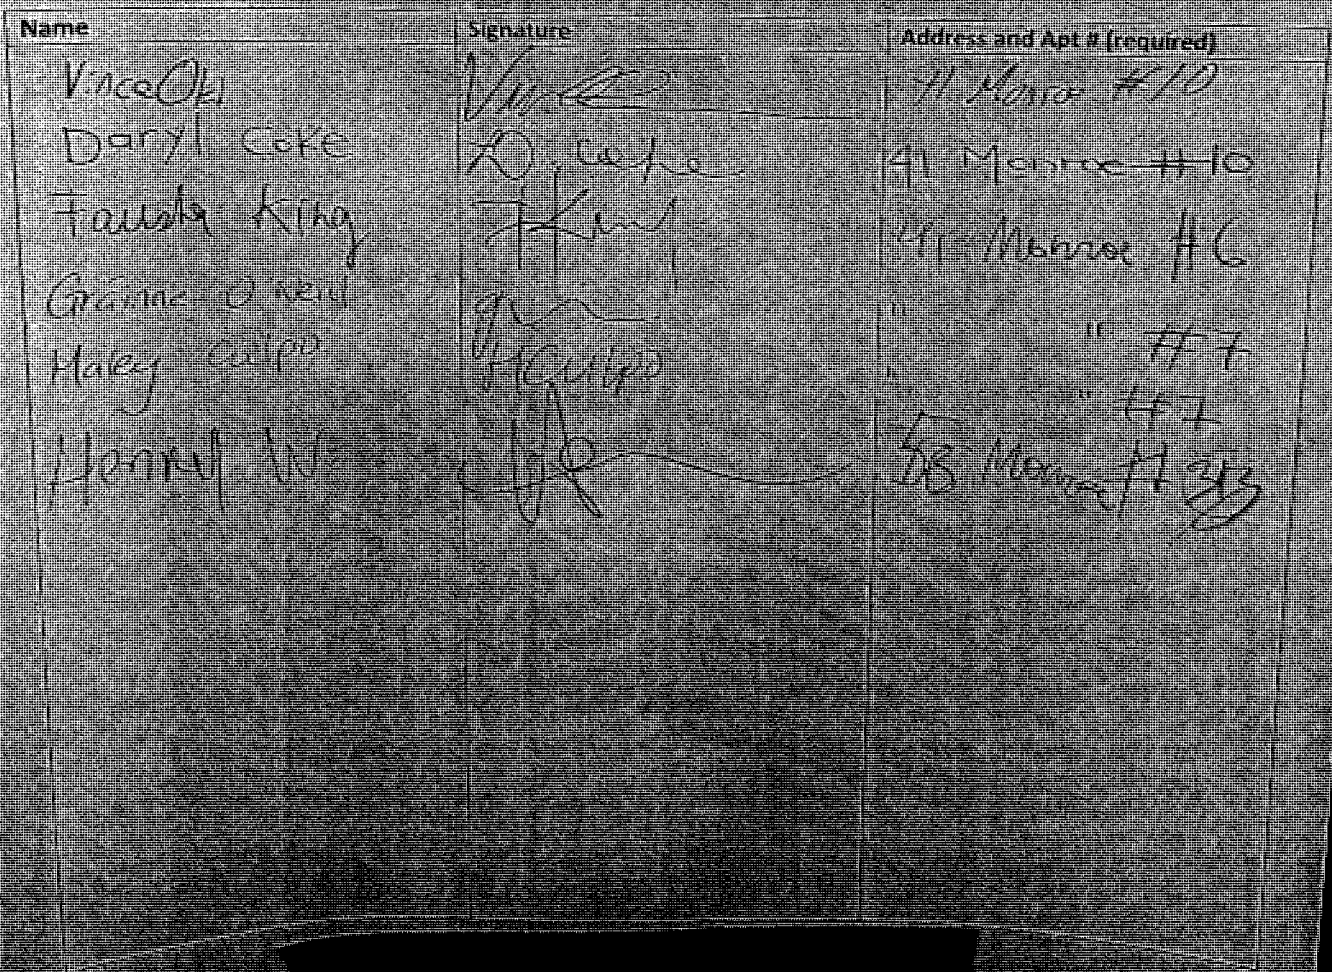 Name Signature Address and Apt # (required)
Vince Oki 41 Monroe #10
Daryl Coke D. Coke 41 Monroe #10
Fausta King F King 41 Monroe #6
Grainne O'Neill " " #7
Haley Culpo H Culpo " " #7
Henry W. Monroe #